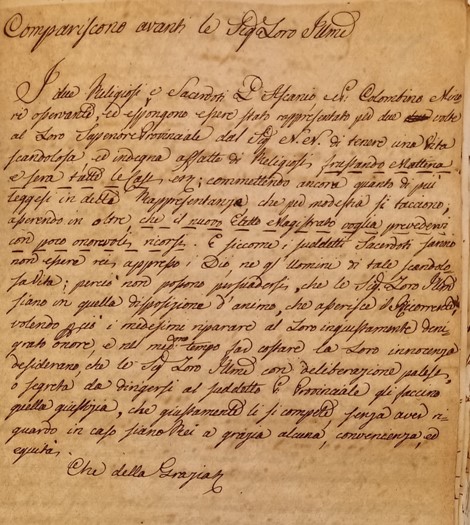 Compariscono avanti le Sig.e Loro Illme
I due Religiosi e Sacerdoti P. Ascanio, e P. Colombino
osservanti, ed espongono essere stato rappresentato più due volte
al Loro Superiore Provinciale dal Sig. N. N. di tenere una Vita
scandolosa, ed indegna affatto di Religiosi,
e sera tutte le Case, con; committendo ancora quanto di più
leggesi in detta Rappresentanza che per modestia si tacciono;
aperendo in oltre, che il nuovo Eletto Magistrato voglia prevedersi
con poco onorevoli ricorsi. E siccome i suddetti Sacerdoti sanno
non essere rei appresso Dio, ne gl'Uomini di tale scandolo
sa Vita; perciò non possono persuadersi, che le Sig. Loro Illme
siano in quella disposizione d'animo, che aperisce il Ricorrente,
volendo i medesimi riparare al Loro ingiustamente deni
grato onore, e nel tempo far costare la Loro innocenza
desiderano, che le Sig. Loro Illme con deliberazione palese,
o segreta da dirigersi al suddetto P. Provinciale gli faccino
quella giustizia, che giustamente li si compete, senza aver ri
guardo in caso siano Rei a grazia alcuna, convenienza, ed
equità.
Che della Grazia